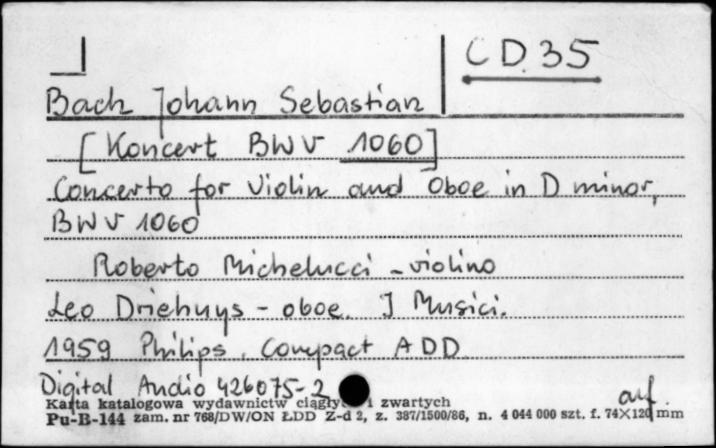 CD 35
Bach Johann Sebastian
[Koncert BWV 1060]
Concerto for Violin and Oboe in D minor,
BWV 1060
Roberto Michelucci - violino
Leo Driehuys - oboe. I Musici.
1959 Philips, Compact ADD
Digital Audio 426075-2
Karta katalogowa wydawnictw ciągłych i zwartych
Pu-B-144 zam. nr 768/DW/ON ŁDD Z-d 2, z. 387/1500/86, n. 4 044 000 szt. f. 74×120 mm